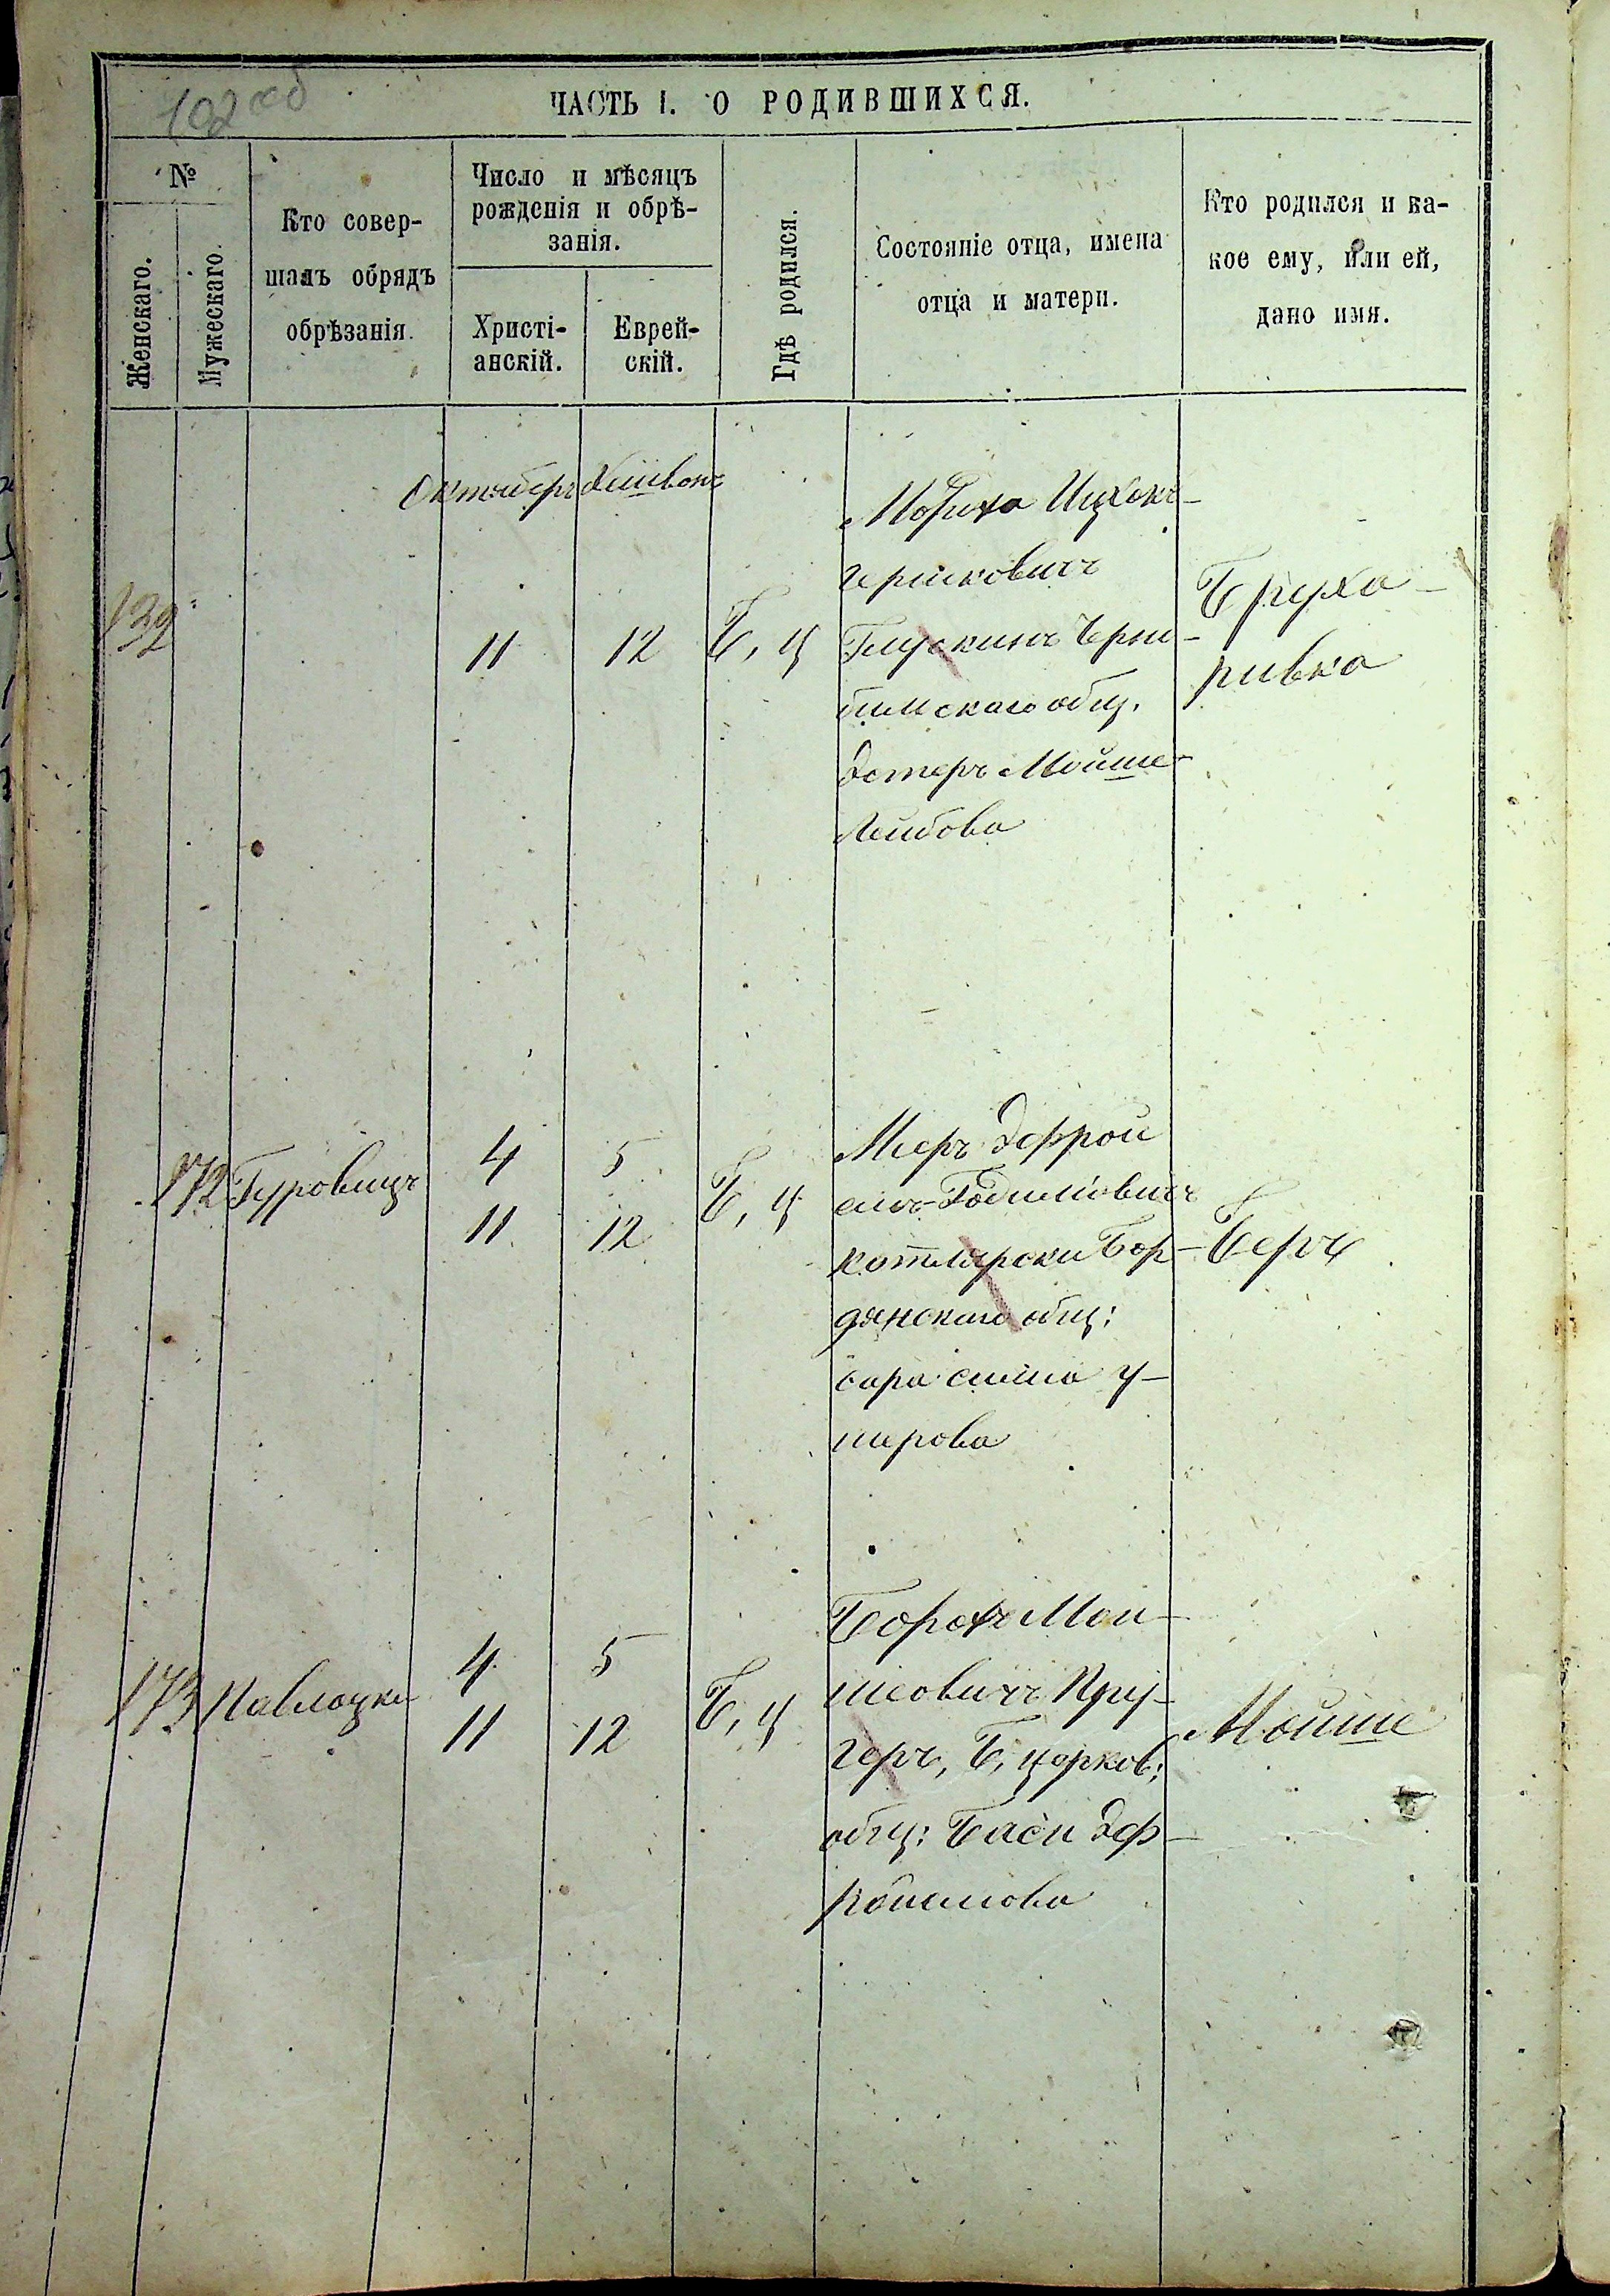 102 об
ЧАСТЬ I. О РОДИВШИХСЯ.
№
Женскаго.
Мужескаго.
Кто совер-
шалъ обрядъ
обрѣзанія.
Число и мѣсяцъ
рожденія и обрѣ-
занія.
Христі-
анскій.
Еврей-
скій.
Гдѣ родился.
Состояніе отца, имена
отца и матери.
Кто родился и ка-
кое ему, или ей,
дано имя.
Октябрь Хешвонъ
139
11
12
Б, Ц
Ицхокъ-
Гершковичъ
Глускинъ Черно-
бильскаго общ.
Эстеръ Мойше-
Лейбова
Бруха-
ривка
172
Гуровицъ
4
5
11
12
Б, Ц
Мееръ Эфрои
емъ-
котлярски Бор-
дянскаго общ:
сара сима у-
шерова
Беръ
173
Павлоцки
4
5
11
12
Б, Ц
Борохъ Мои-
шеовичъ Кри-
геръ, Б, церков:
общ: Баси Эф-
роимова
Мойше